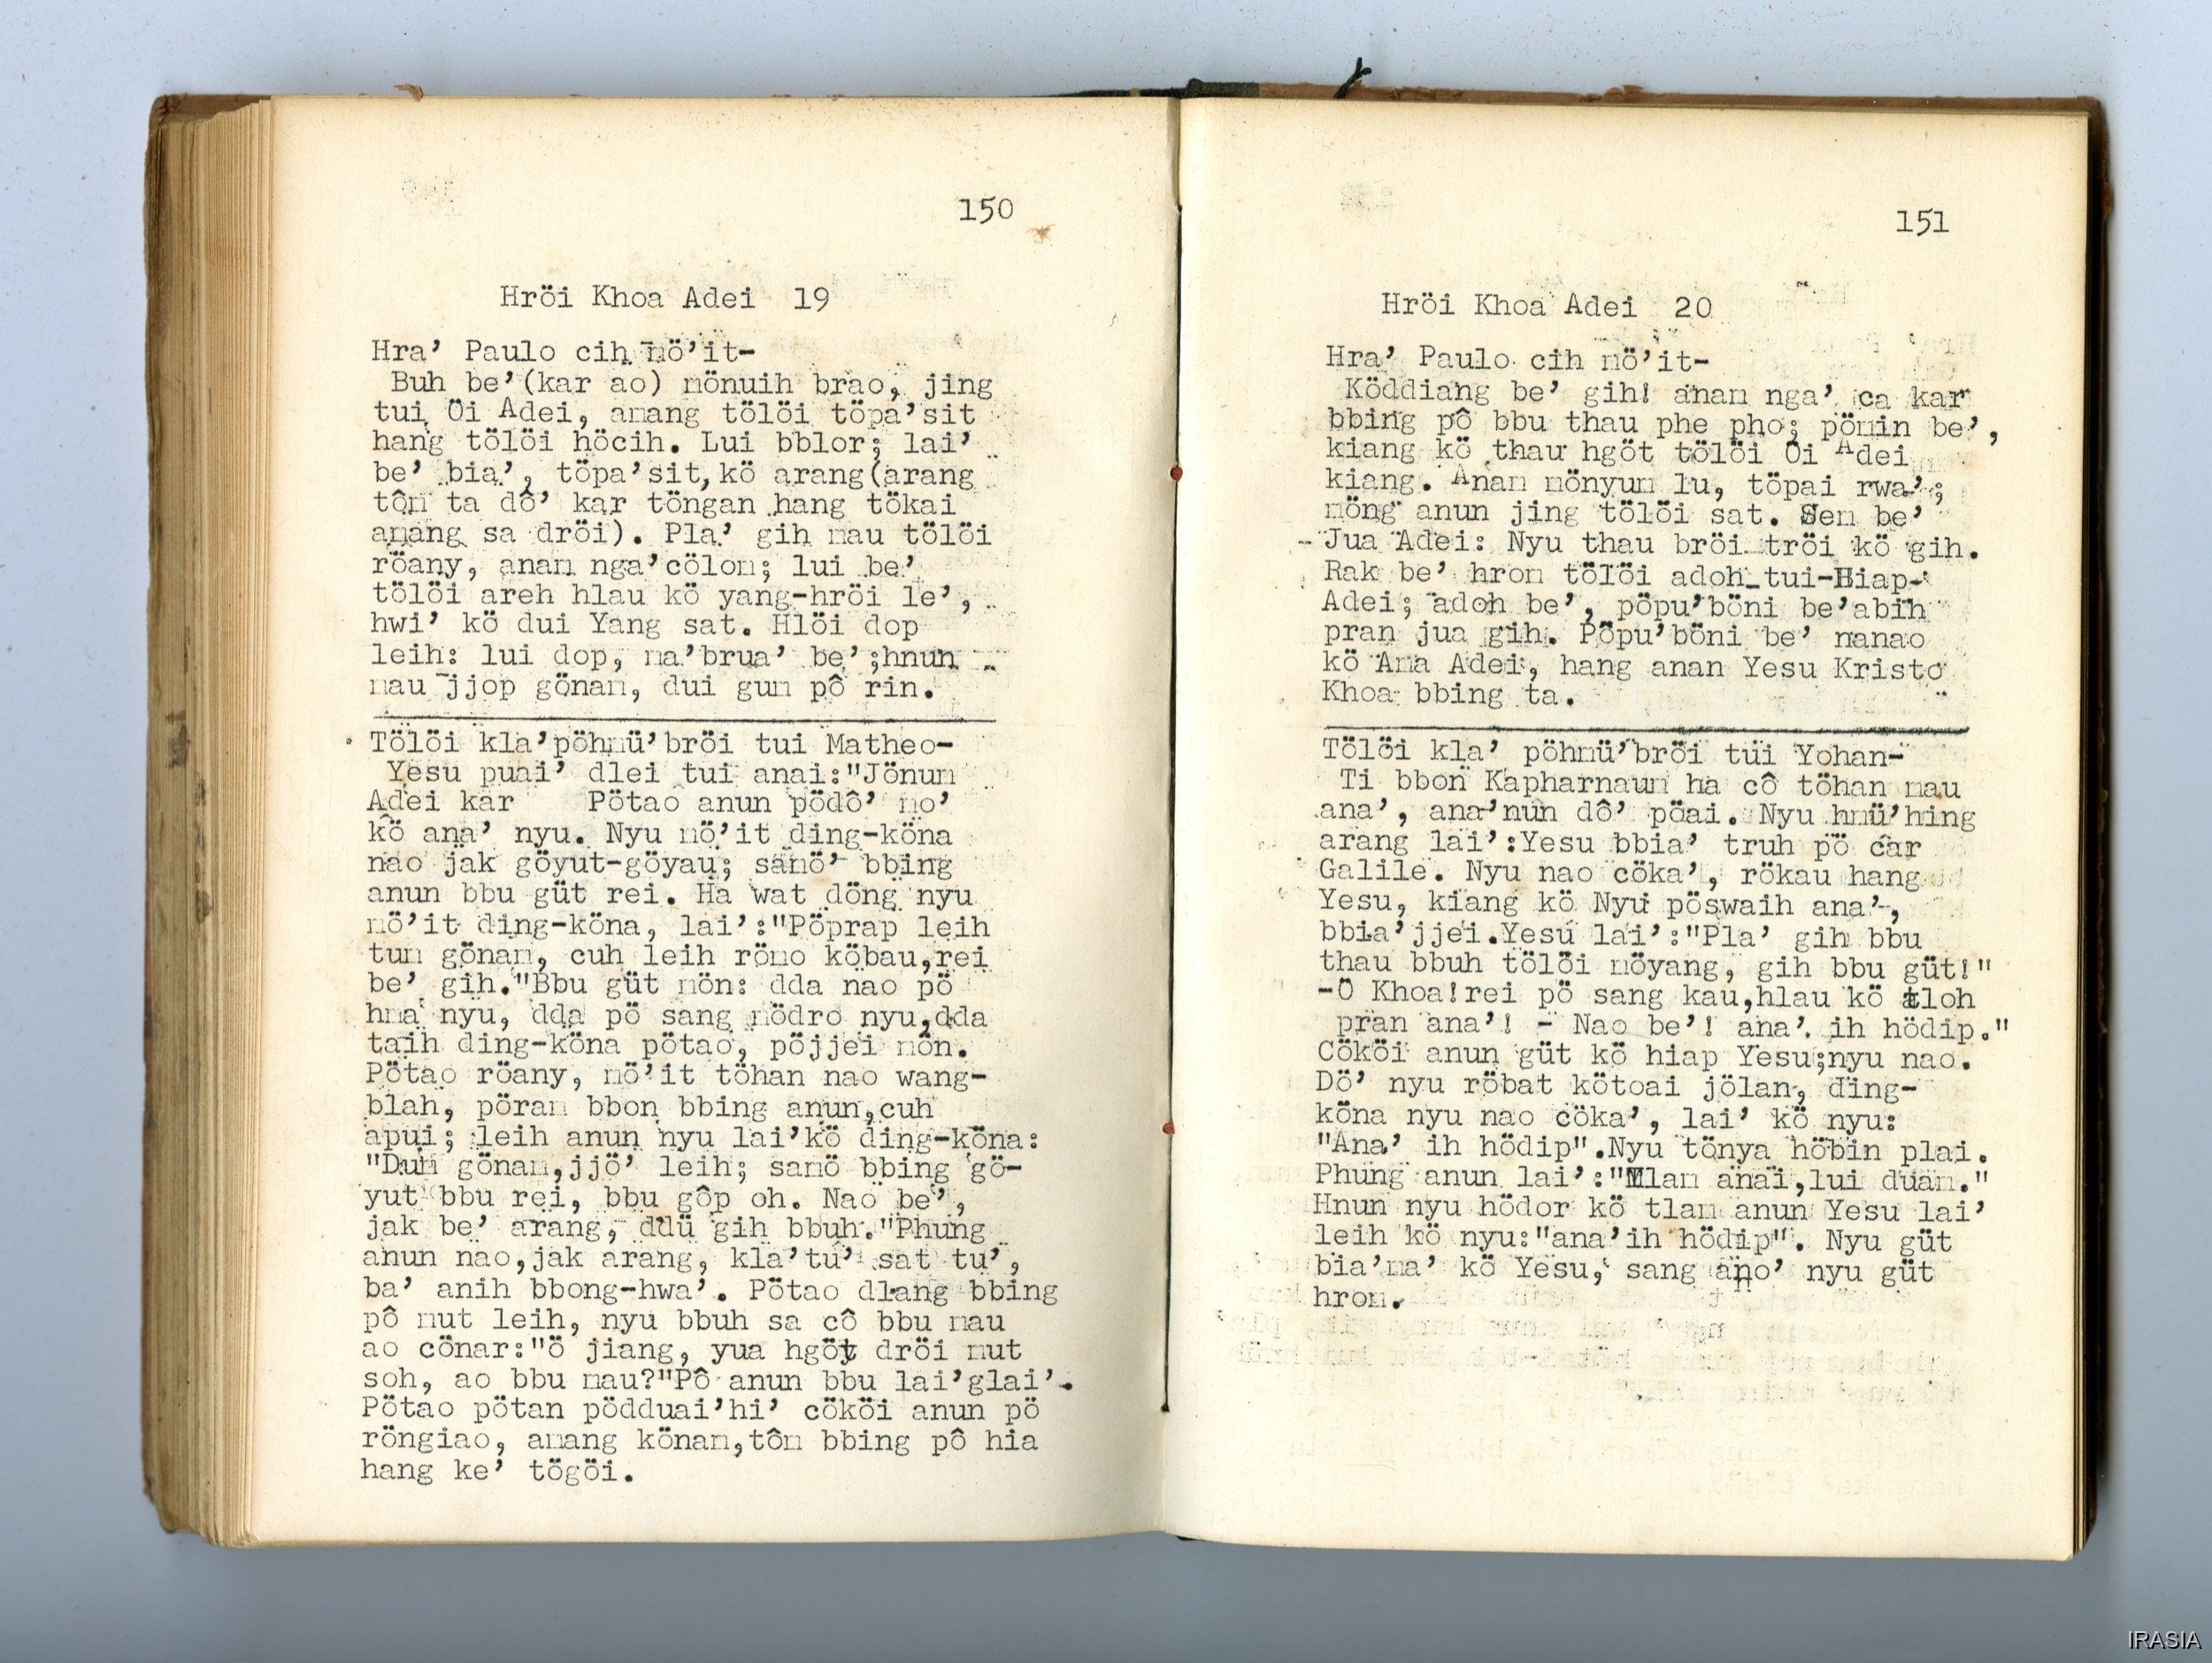 150
Hröi Khoa Adei 19
Hra’ Paulo cih mö’it-
Buh be’(kar ao) mönuih brao, jing
tui Öi Adei, amang tölöi töpa’sit
hang tölöi höcih. Lui bblor; lai’
be’ bia’, töpa’sit,kö arang(arang
tôm ta dô’ kar töngan hang tökai
amang sa dröi). Pla’ gih mau tölöi
röany, anam nga’cölom; lui be’
tölöi areh hlau kö yang-hröi le’,
hwi’ kö dui Yang sat. Hlöi dop
leih: lui dop, ma’brua’ be’;hnun
mau jjop gönam, dui gum pô rin.
Tölöi kla’pöhmü’bröi tui Matheo-
Yesu puai’ dlei tui anai:"Jönum
Adei kar Pötao anun pödô’ mo’
kö ana’ nyu. Nyu mö’it ding-köna
nao jak göyut-göyau; samö’ bbing
anun bbu güt rei. Ha wat döng nyu
mö’it ding-köna, lai’:"Pöprap leih
tum gönam, cuh leih römo köbau,rei
be’ gih."Bbu güt mön: dda nao pö
hma nyu, dda pö sang mödro nyu,dda
taih ding-köna pötao, pöjjei mön.
Pötao röany, mö’it töhan nao wang-
blah, pöram bbon bbing anun,cuh
apui; leih anun nyu lai’kö ding-köna:
"Dum gönam,jjö’ leih; samö bbing gö-
yut bbu rei, bbu gôp oh. Nao be’,
jak be’ arang, ddü gih bbuh."Phung
anun nao,jak arang, kla’tu’ sat tu’,
ba’ anih bbong-hwa’. Pötao dlang bbing
pô mut leih, nyu bbuh sa cô bbu mau
ao cönar:"ö jiang, yua hgöt dröi mut
soh, ao bbu mau?"Pô anun bbu lai’glai’.
Pötao pötan pödduai’hi’ cököi anun pö
röngiao, amang könam,tôm bbing pô hia
hang ke’ tögöi.
151
Hröi Khoa Adei 20
Hra’ Paulo cih mö’it-
Köddiang be’ gih! anam nga’ ca kar
bbing pô bbu thau phe pho; pömin be’,
kiang kö thau hgöt tölöi Öi Adei
kiang. Anam mönyum lu, töpai rwa’;
möng anun jing tölöi sat. Sem be’
Jua Adei: Nyu thau bröi tröi kö gih.
Rak be’ hrom tölöi adoh tui-Hiap-
Adei; adoh be’, pöpu’böni be’abih
pran jua gih. Pöpu’böni be’ nanao
kö Ama Adei, hang anan Yesu Kristo
Khoa bbing ta.
Tölöi kla’ pöhmü’bröi tui Yohan-
Ti bbon Kapharnaum ha cô töhan mau
ana’, ana’nun dô’ pöai. Nyu hmü’hing
arang lai’:Yesu bbia’ truh pö car
Galile. Nyu nao cöka’, rökau hang
Yesu, kiang kö Nyu pöswaih ana’,
bbia’jjei.Yesu lai’:"Pla’ gih bbu
thau bbuh tölöi möyang, gih bbu güt!"
-Ö Khoa!rei pö sang kau,hlau kö tloh
pran ana’! - Nao be’! ana’ ih hödip."
Cököi anun güt kö hiap Yesu;nyu nao.
Dö’ nyu röbat kötoai jölan, ding-
köna nyu nao cöka’, lai’ kö nyu:
"Ana’ ih hödip".Nyu tönya höbin plai.
Phung anun lai’:"Mlam anai,lui duam."
Hnun nyu hödor kö tlam anun Yesu lai’
leih kö nyu:"ana’ih hödip". Nyu güt
bia’ma’ kö Yesu, sang ano’ nyu güt
hrom.
IRASIA